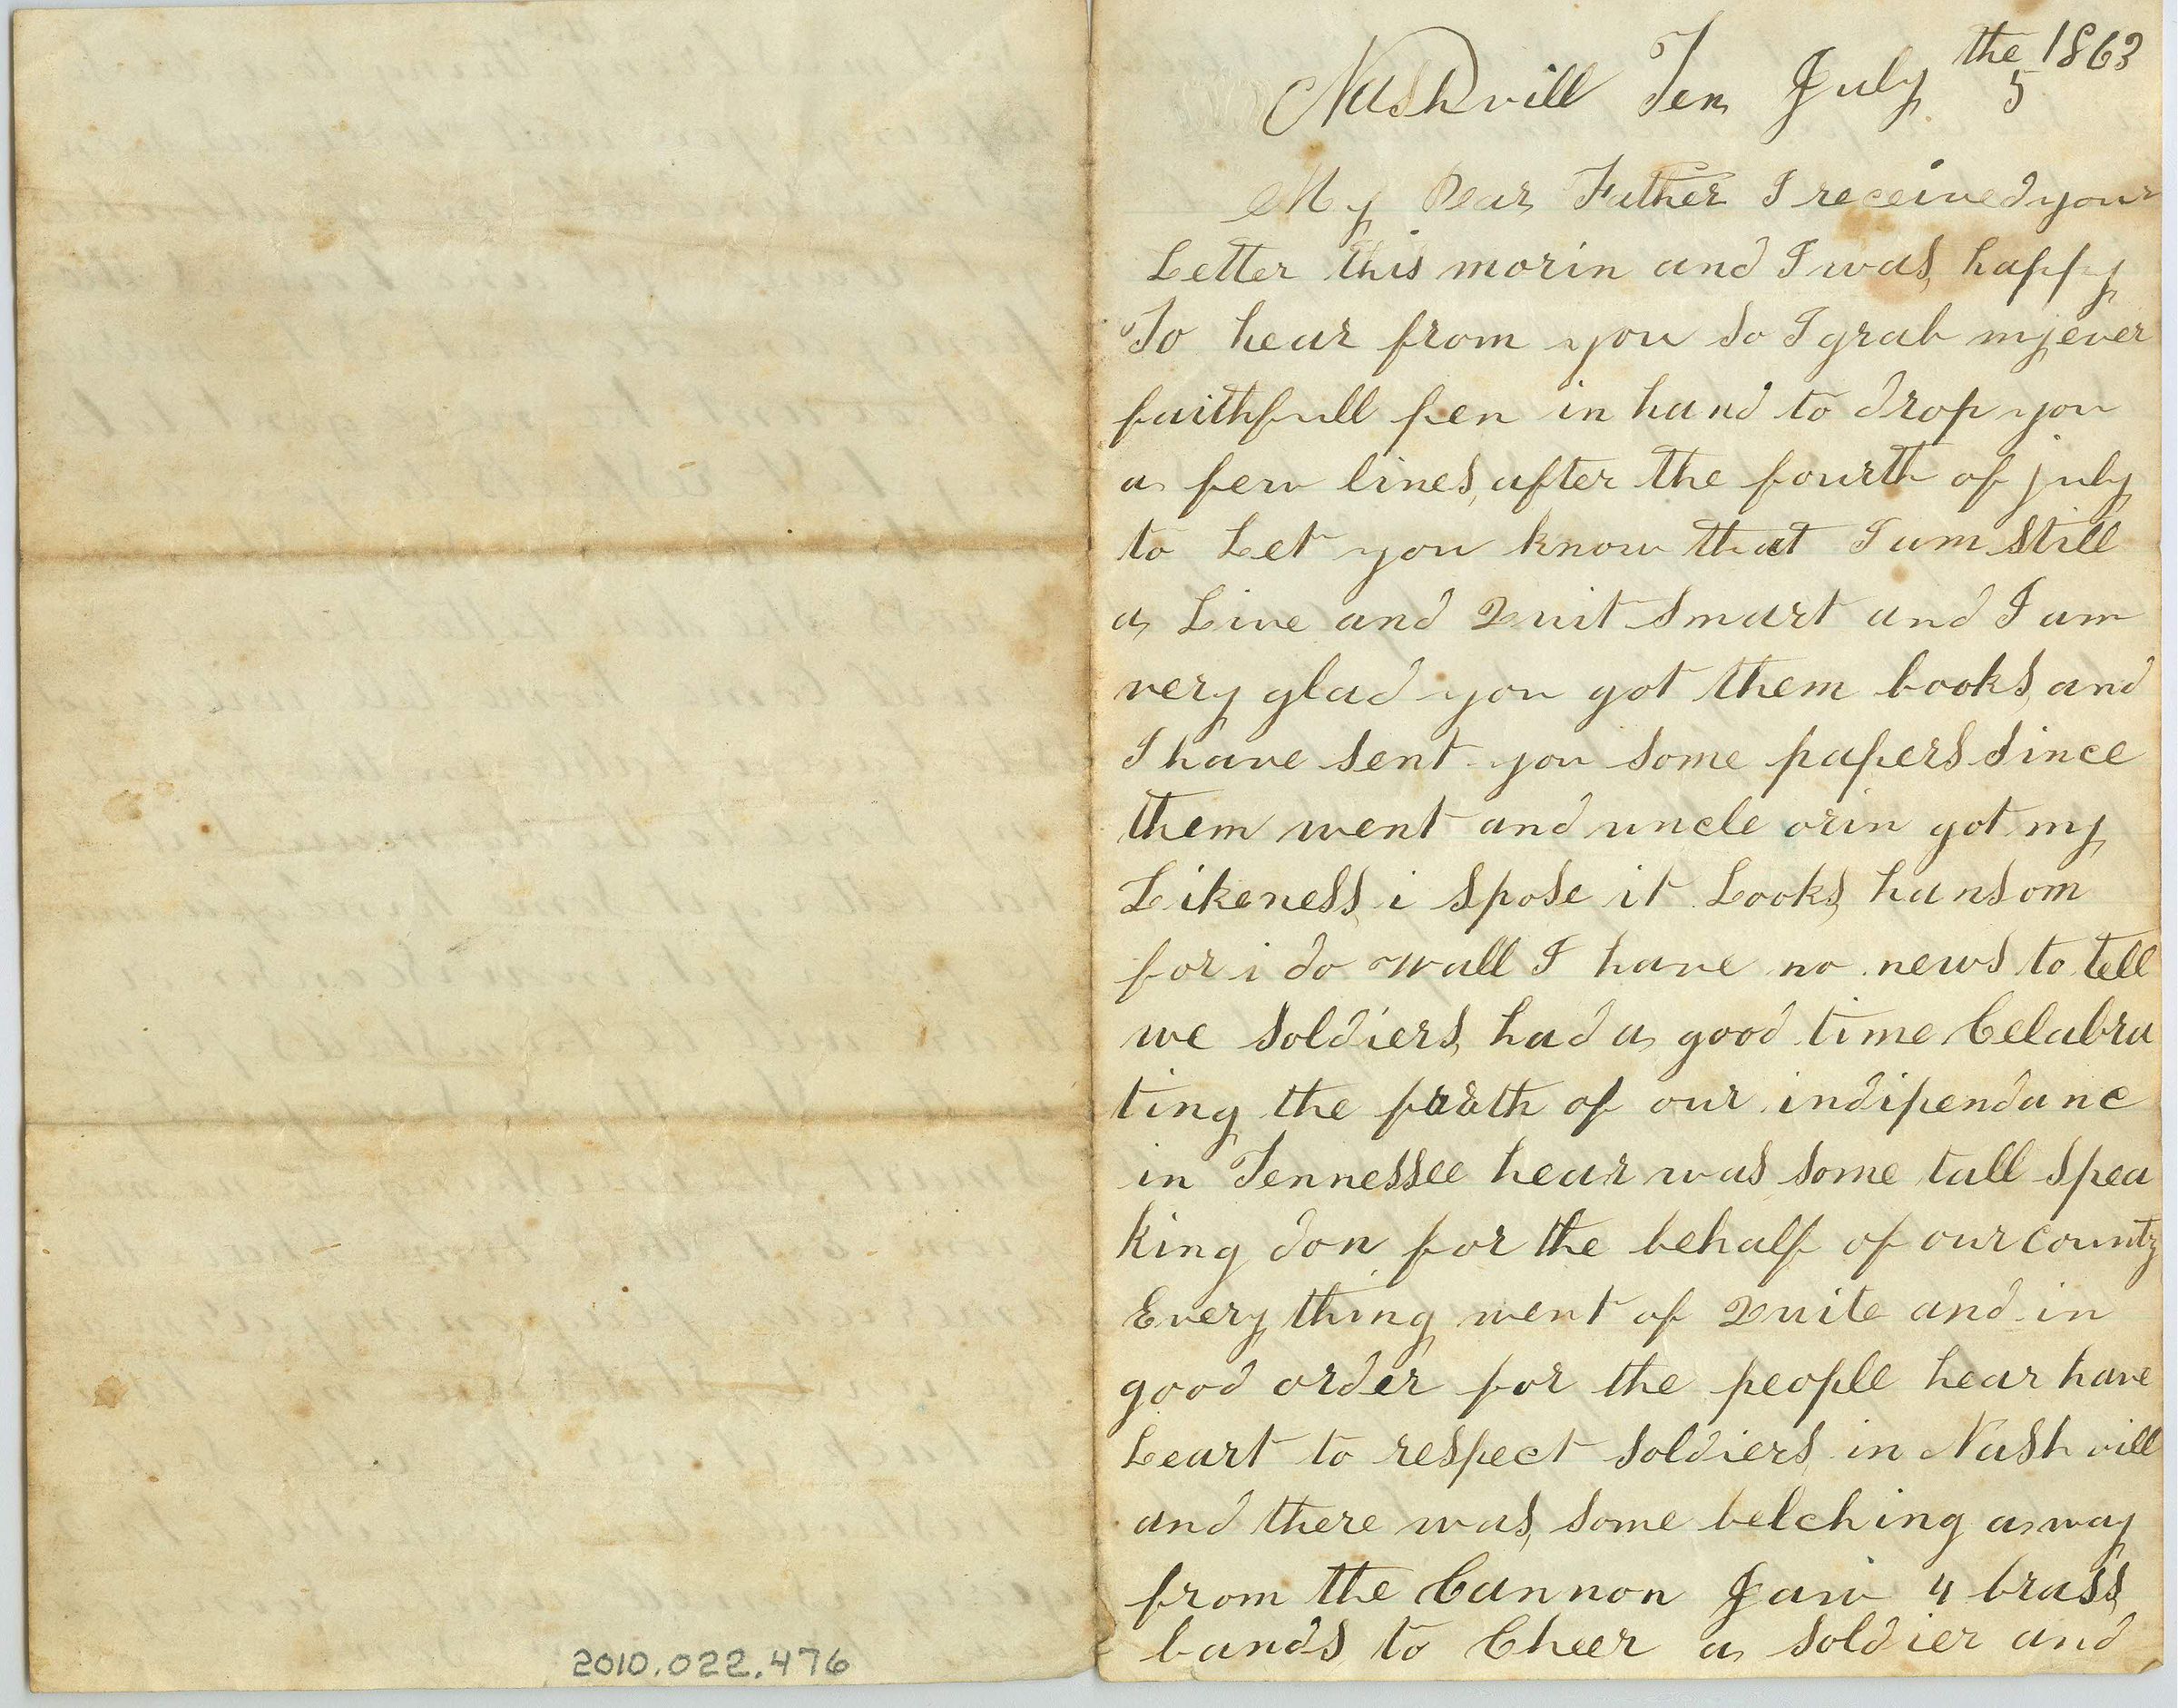 Nashvill Ten July the 5 1863
My Dear Father I received your
Letter this morin and I was happy
To hear from you So I grab my ever
faithfull pen in hand to drop you
a few lines after the fourth of july
to Let you know that I am Still
a Live and Quit Smart and I am
very glad you got them books and
I have sent you some papers Since
them went and uncle orin got my
Likeness i spose it Looks hansom
for i do wall I have no news to tell
we soldiers had a good time Celabra
ting the of our indipendanc
in Tennessee hear was some tall spea
king don for the behalf of our county
Every thing went of Quite and in
good order for the people hear have
Leart to respect soldiers in Nashvill
and there was some belching away
from the Cannon Jaw 4 brass
bands to Cheer a soldier and
2010.022.476